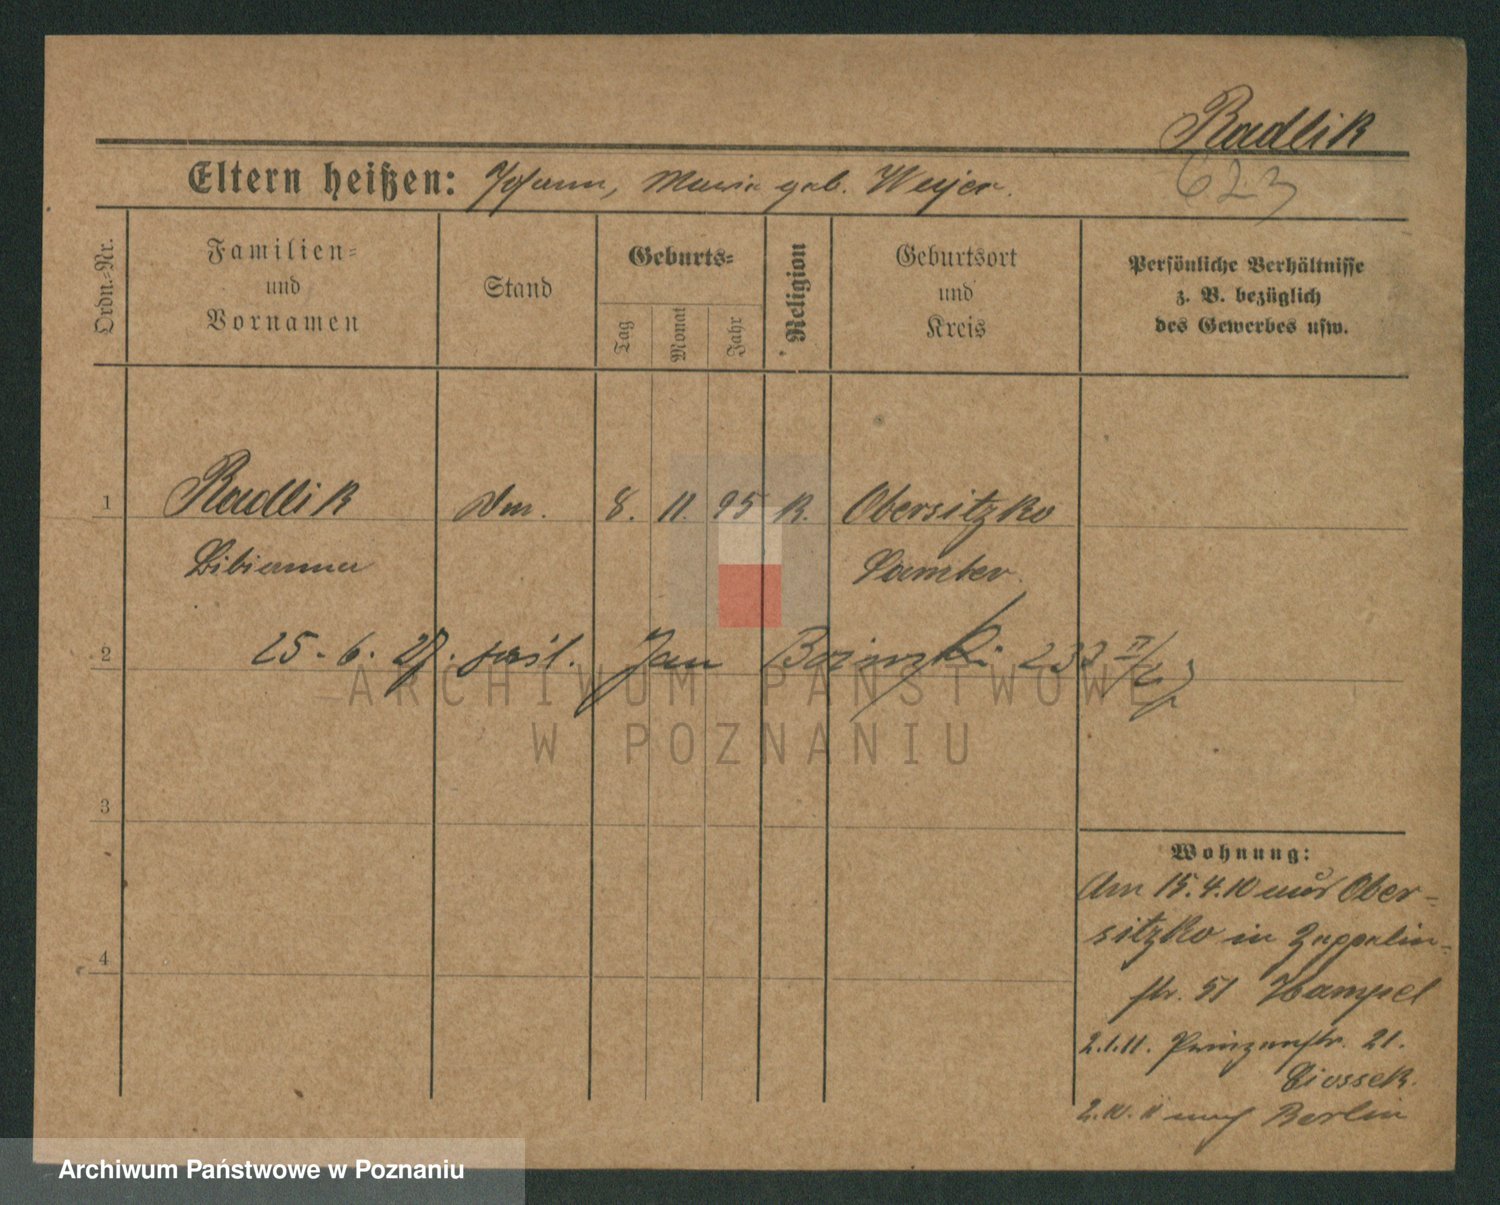 Radlik
623
Eltern heißen: Johann, Maria geb. Weyer.
Ordn.=Nr.
Familien=
und
Vornamen
Stand
Geburts=
Tag
Monat
Jahr
Religion
Geburtsort
und
Kreis
Persönliche Verhältnisse
z. B. bezüglich
des Gewerbes usw.
1 Radlik 8. 11. 95 K. Obersitzko
Bibianna Samter.
2 25. 6. 27. Jan 233 II/27
3
4
Wohnung:
Am 15.4.10 aus Ober-
sitzko in Zeppelin-
str. 51 Hampel
2.1.11. Prinzenstr. 21.
Ciossek.
2.10.11 nach Berlin
ARCHIWUM PAŃSTWOWE
W POZNANIU
Archiwum Państwowe w Poznaniu